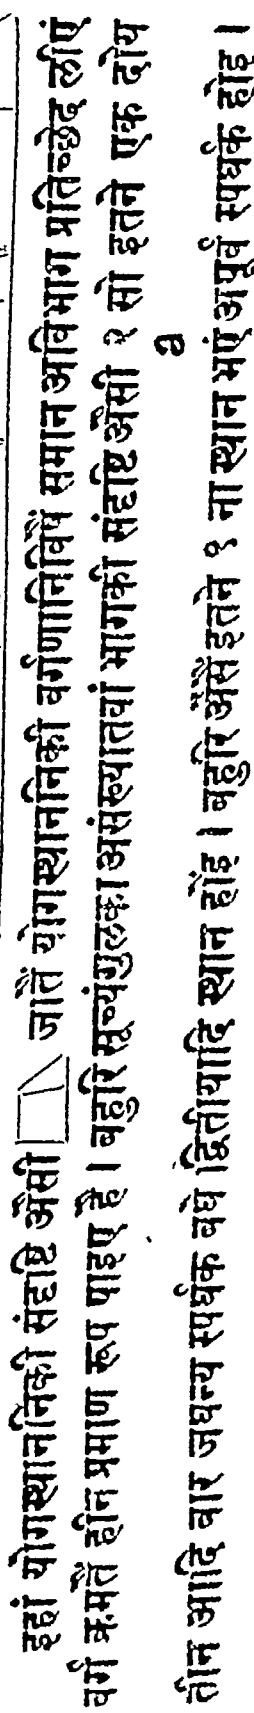 इहां योगस्थाननिकी संदृष्टि अैसी जातैं योगस्थाननिकी वर्गणानिविषैं समान अविभाग प्रतिच्छेद लीएं
वर्ग क्रमतैं हीन प्रमाण रूप पाइए है । बहुरि सूच्यंगुलका असंख्यातवां भागकी संदृष्टि अैसी २ सो इतने एक दोय
a
तीन आदि वार जघन्य स्पर्धक बधैं द्वितीयादि स्थान होंइ । बहुरि अैसैं इतने १ ना स्थान भएं अपूर्व स्पर्धक होइ ।